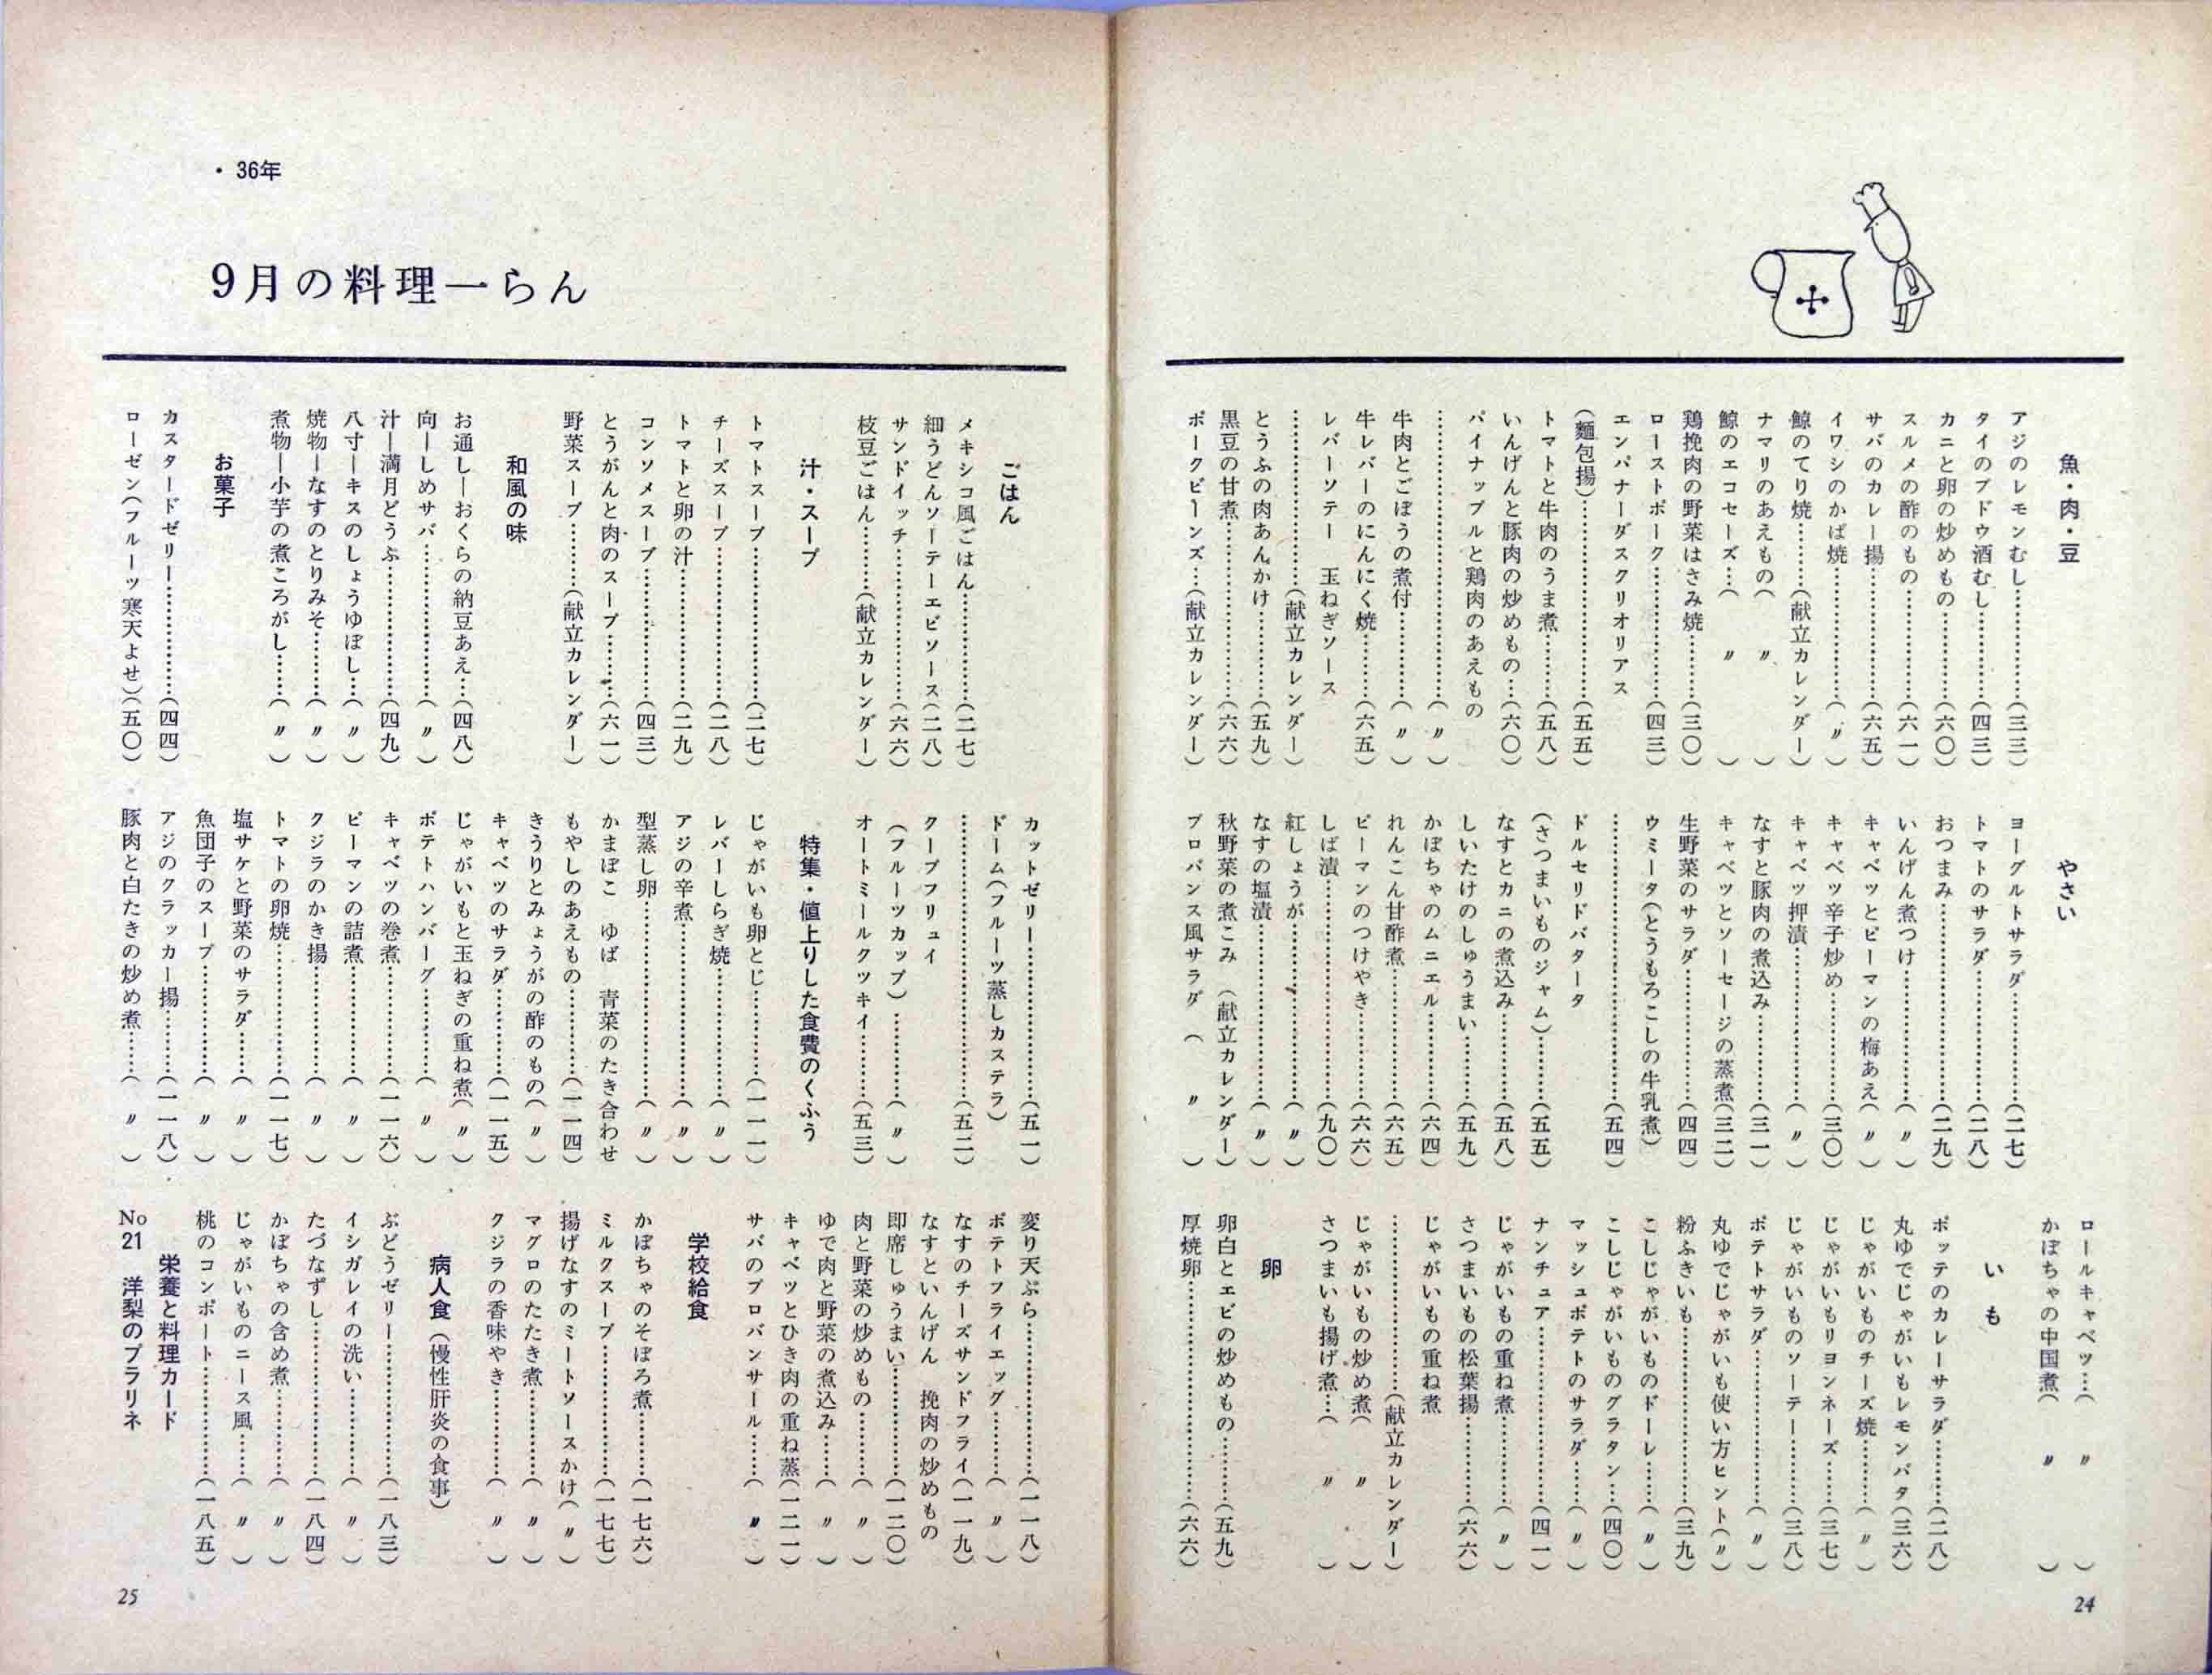 魚・肉・豆
アジのレモンむし…………(三三)
タイのブドウ酒むし…………(四三)
カニと卵の炒めもの…………(六〇)
スルメの酢のもの…………(六一)
サバのカレー揚…………(六五)
イワシのかば焼…………(〃)
鯨のてり焼………(献立カレンダー)
ナマリのあえもの(〃)
鯨のエコセーズ…(〃)
鶏挽肉の野菜はさみ焼………(三〇)
ローストポーク…………(四三)
エンパナーダスクリオリアス
(麺包揚)…………(五五)
トマトと牛肉のうま煮………(五八)
いんげんと豚肉の炒めもの…(六〇)
パイナップルと鶏肉のあえもの
…………(〃)
牛肉とごぼうの煮付………(〃)
牛レバーのにんにく焼………(六五)
レバーソテー 玉ねぎソース
…………(献立カレンダー)
とうふの肉あんかけ…………(五九)
黒豆の甘煮…………(六六)
ポークビーンズ…(献立カレンダー)
やさい
ヨーグルトサラダ…………(二七)
トマトのサラダ…………(二八)
おつまみ…………(二九)
いんげん煮つけ…………(〃)
キャベツとピーマンの梅あえ(〃)
キャベツ辛子炒め…………(三〇)
キャベツ押漬…………(〃)
なすと豚肉の煮込み………(三一)
キャベツとソーセージの蒸煮(三二)
生野菜のサラダ…………(四四)
ウミータ(とうもろこしの牛乳煮)
…………(五四)
ドルセリドバタータ
(さつまいものジャム)………(五五)
なすとカニの煮込み………(五八)
しいたけのしゅうまい………(五九)
かぼちゃのムニエル………(六四)
れんこん甘酢煮…………(六五)
ピーマンのつけやき…………(六六)
しば漬…………(九〇)
紅しょうが…………(〃)
なすの塩漬…………(〃)
秋野菜の煮こみ (献立カレンダー)
プロバンス風サラダ (〃)
ロールキャベツ…(〃)
かぼちゃの中国煮(〃)
いも
ポッテのカレーサラダ………(二八)
丸ゆでじゃがいもレモンバタ(三六)
じゃがいものチーズ焼………(〃)
じゃがいもリヨンネーズ……(三七)
じゃがいものソーテー………(三八)
ポテトサラダ…………(〃)
丸ゆでじゃがいも使い方ヒント(〃)
粉ふきいも…………(三九)
こしじゃがいものドーレ……(〃)
こしじゃがいものグラタン…(四〇)
マッシュポテトのサラダ……(〃)
ナンチュア…………(四一)
じゃがいもの重ね煮………(〃)
さつまいもの松葉揚………(六六)
じゃがいもの重ね煮
…………(献立カレンダー)
じゃがいもの炒め煮(〃)
さつまいも揚げ煮…(〃)
卵
卵白とエビの炒めもの………(五九)
厚焼卵…………(六六)
24
・36年
9月の料理一らん
ごはん
メキシコ風ごはん…………(二七)
細うどんソーテーエビソース(二八)
サンドイッチ…………(六六)
枝豆ごはん………(献立カレンダー)
汁・スープ
トマトスープ…………(二七)
チーズスープ…………(二八)
トマトと卵の汁…………(二九)
コンソメスープ…………(四三)
とうがんと肉のスープ………(六一)
野菜スープ………(献立カレンダー)
和風の味
お通し―おくらの納豆あえ…(四八)
向―しめサバ…………(〃)
汁―満月どうふ…………(四九)
八寸―キスのしょうゆぼし…(〃)
焼物―なすのとりみそ………(〃)
煮物―小芋の煮ころがし……(〃)
お菓子
カスタードゼリー…………(四四)
ローゼン(フルーツ寒天よせ)(五〇)
カットゼリー…………(五一)
ドーム(フルーツ蒸しカステラ)
…………(五二)
クープフリュイ
(フルーツカップ)…………(〃)
オートミールクツキイ………(五三)
特集・値上りした食費のくふう
じゃがいも卵とじ…………(一一一)
レバーしらぎ焼…………(〃)
アジの辛煮…………(〃)
型蒸し卵…………(〃)
かまぼこ ゆば 青菜のたき合わせ
もやしのあえもの…………(一一四)
きうりとみょうがの酢のもの(〃)
キャベツのサラダ…………(一一五)
じゃがいもと玉ねぎの重ね煮(〃)
ポテトハンバーグ…………(〃)
キャベツの巻煮…………(一一六)
ピーマンの詰煮…………(〃)
クジラのかき揚…………(〃)
トマトの卵焼…………(一一七)
塩サケと野菜のサラダ……(〃)
魚団子のスープ…………(〃)
アジのクラッカー揚………(一一八)
豚肉と白たきの炒め煮……(〃)
変り天ぷら…………(一一八)
ポテトフライエッグ………(〃)
なすのチーズサンドフライ(一一九)
なすといんげん 挽肉の炒めもの
即席しゅうまい…………(一二〇)
肉と野菜の炒めもの………(〃)
ゆで肉と野菜の煮込み……(〃)
キャベツとひき肉の重ね蒸(一二一)
サバのプロバンサール……(〃)
学校給食
かぼちゃのそぼろ煮………(一七六)
ミルクスープ…………(一七七)
揚げなすのミートソースかけ(〃)
マグロのたたき煮…………(〃)
クジラの香味やき…………(〃)
病人食(慢性肝炎の食事)
ぶどうゼリー…………(一八三)
イシガレイの洗い…………(〃)
たづなずし…………(一八四)
かぼちゃの含め煮…………(〃)
じゃがいものニース風……(〃)
桃のコンポート…………(一八五)
栄養と料理カード
No21 洋梨のプラリネ
25